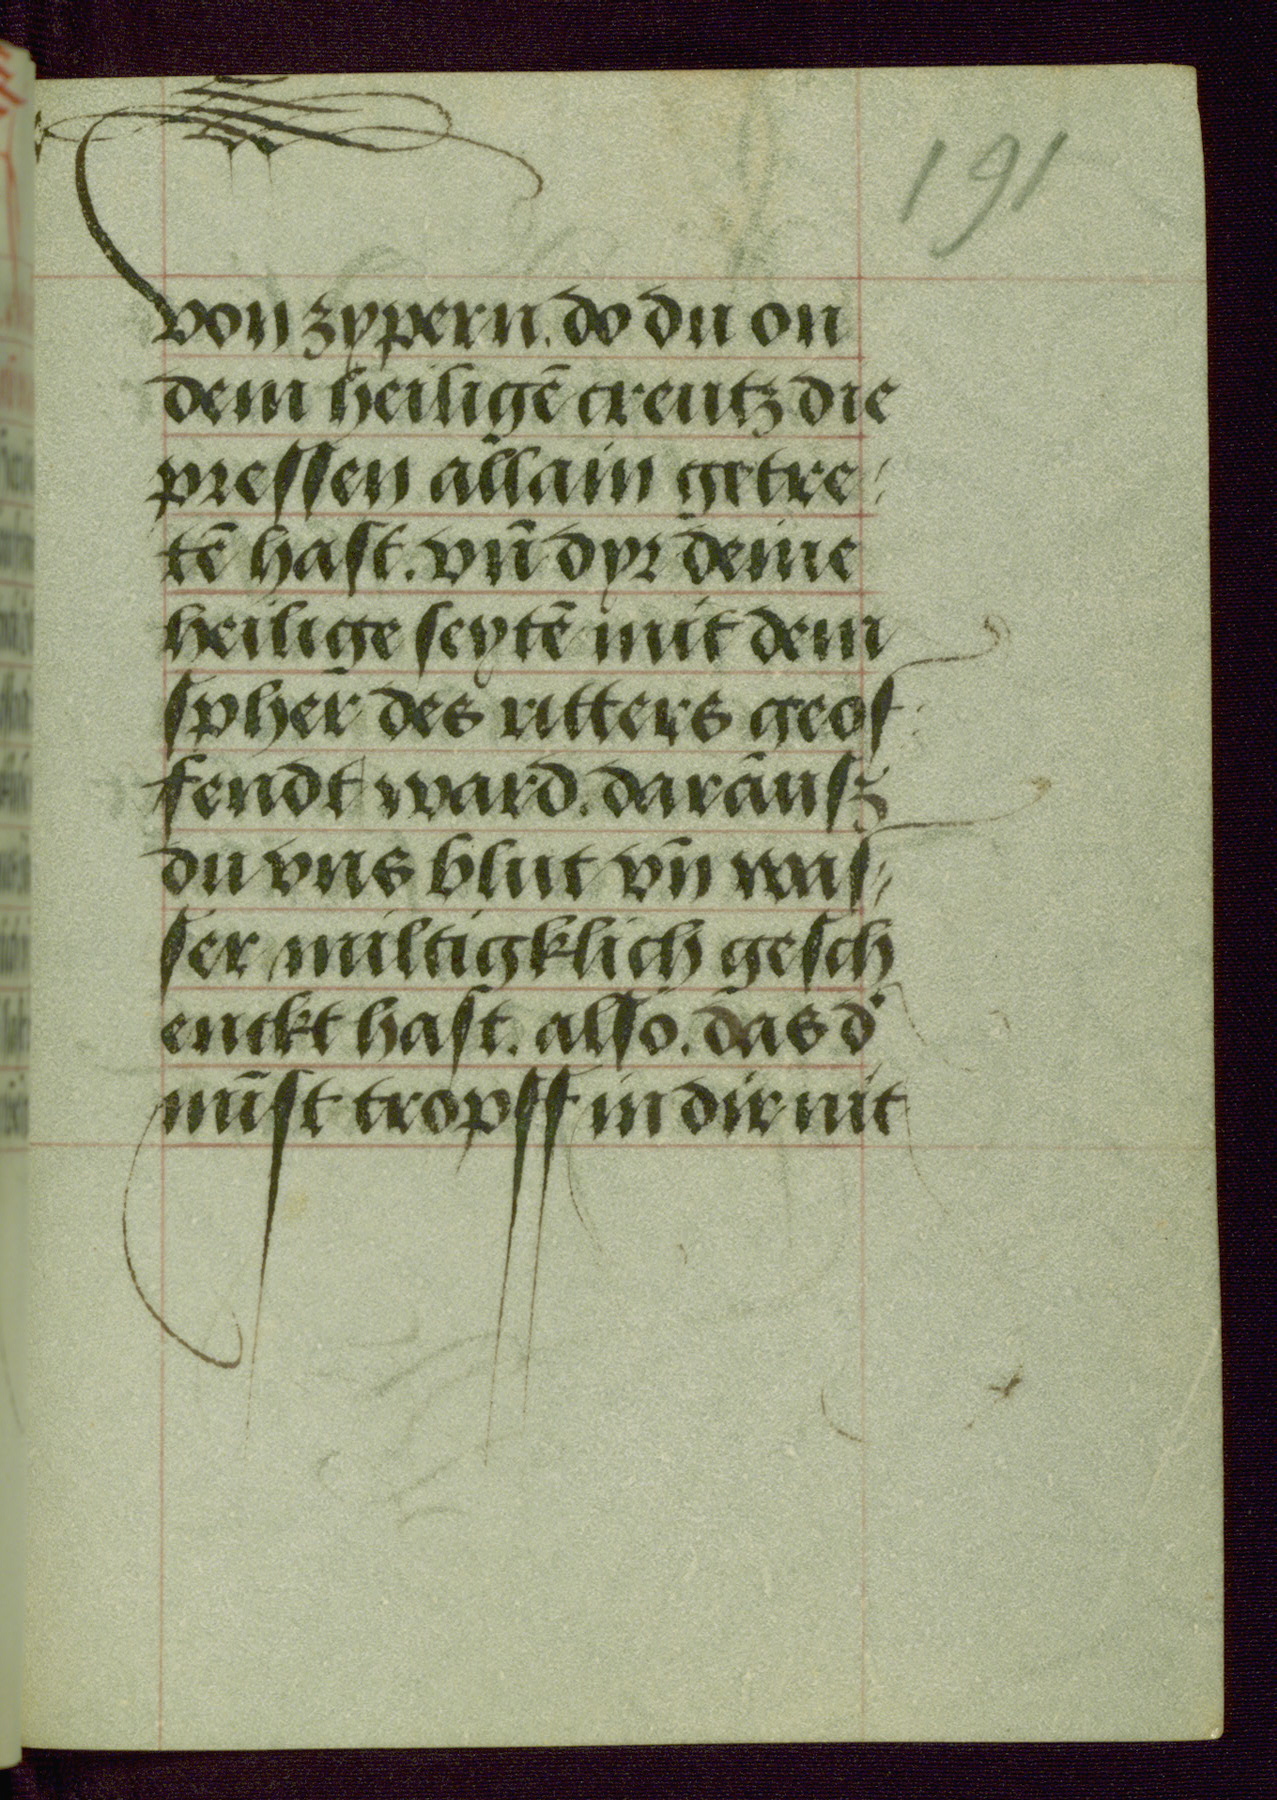 191
von zypern. do du on
dem heiligē creutz die
pressen allain getre⸗
tē hast. vn̄ dyr deine
heilige seytē mit dem
spher des ritters geof
fendt ward. darausz
du vns blut vn̄ was⸗
ser miltigklich gesch
enckt hast. also. das d'
mīst tropff in dir nit